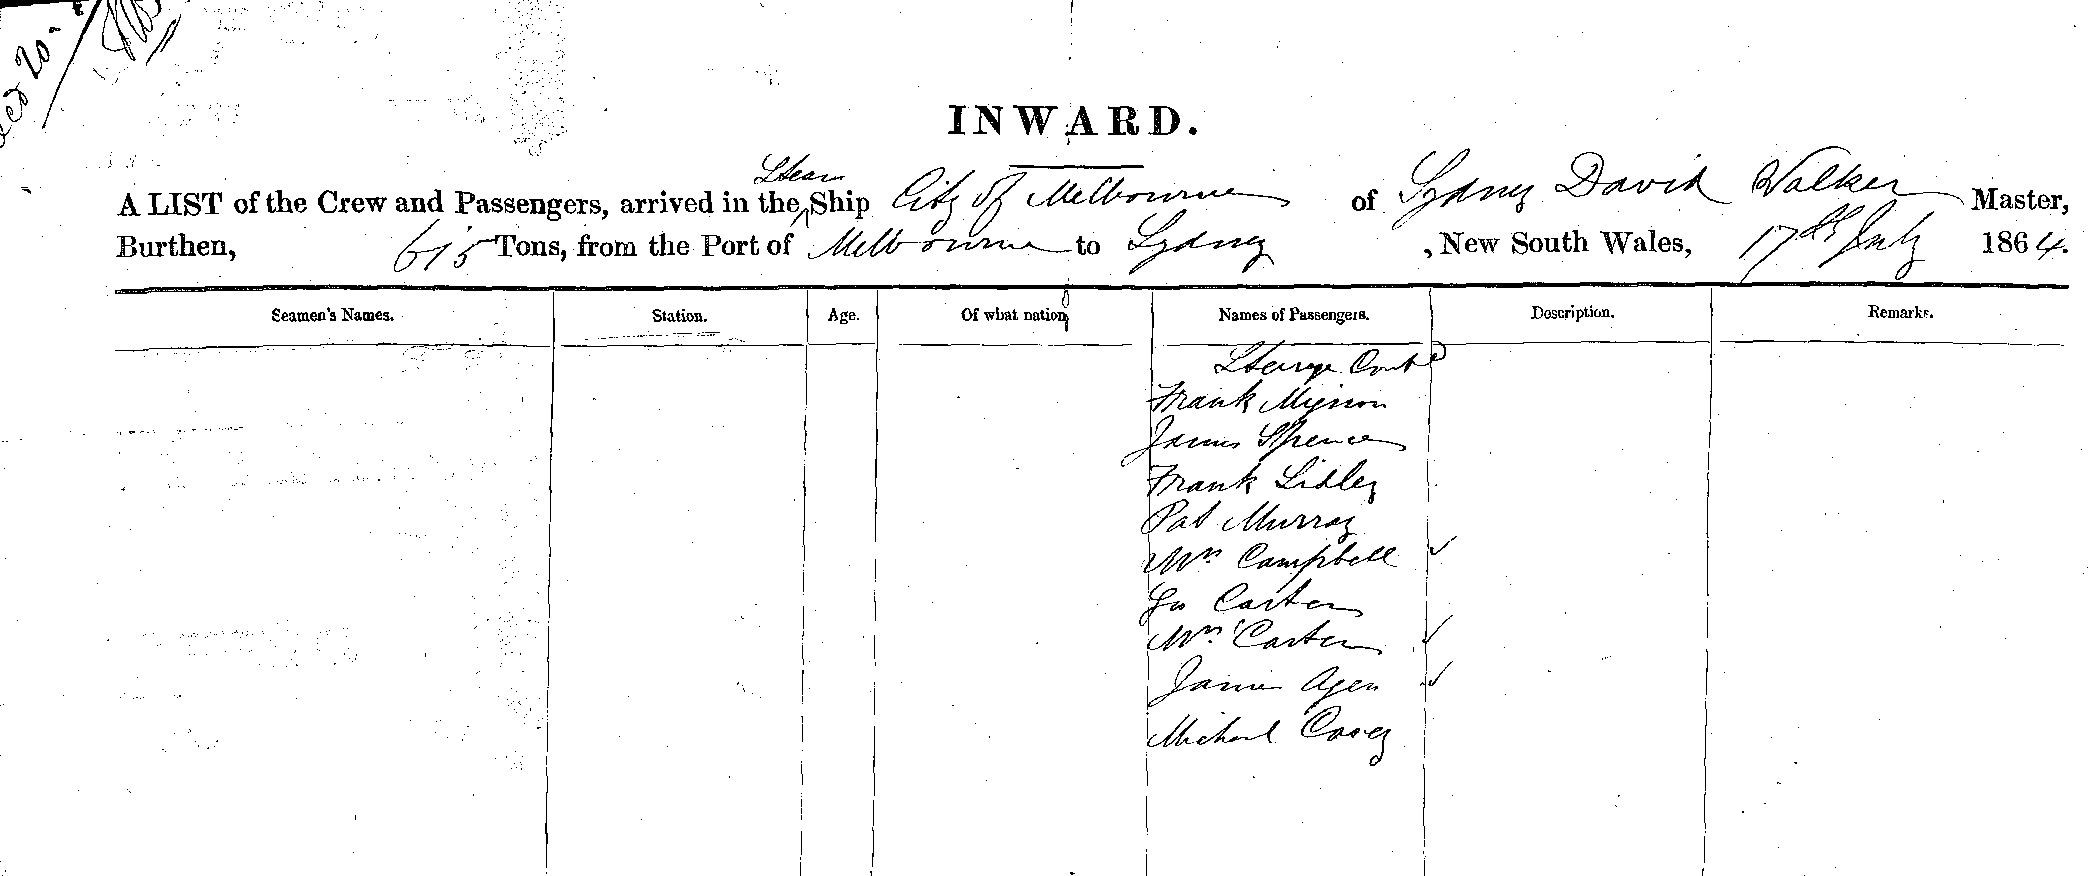 20
INWARD.
Steam
A LIST of the Crew and Passengers, arrived in the Ship City of Melbourne of Sydney David Walker Master,
Burthen, 615 Tons, from the Port of Melbourne to Sydney , New South Wales, 17th July 1864.
Seamen's Names. Station. Age. Of what nation Names of Passengers. Description. Remarks.
Steerage Contd
Frank Mignon
James Spence
Frank Sibley
Pat Murray
Wm Campbell
Carter
Wm Carter
James Agen
Michael Casey